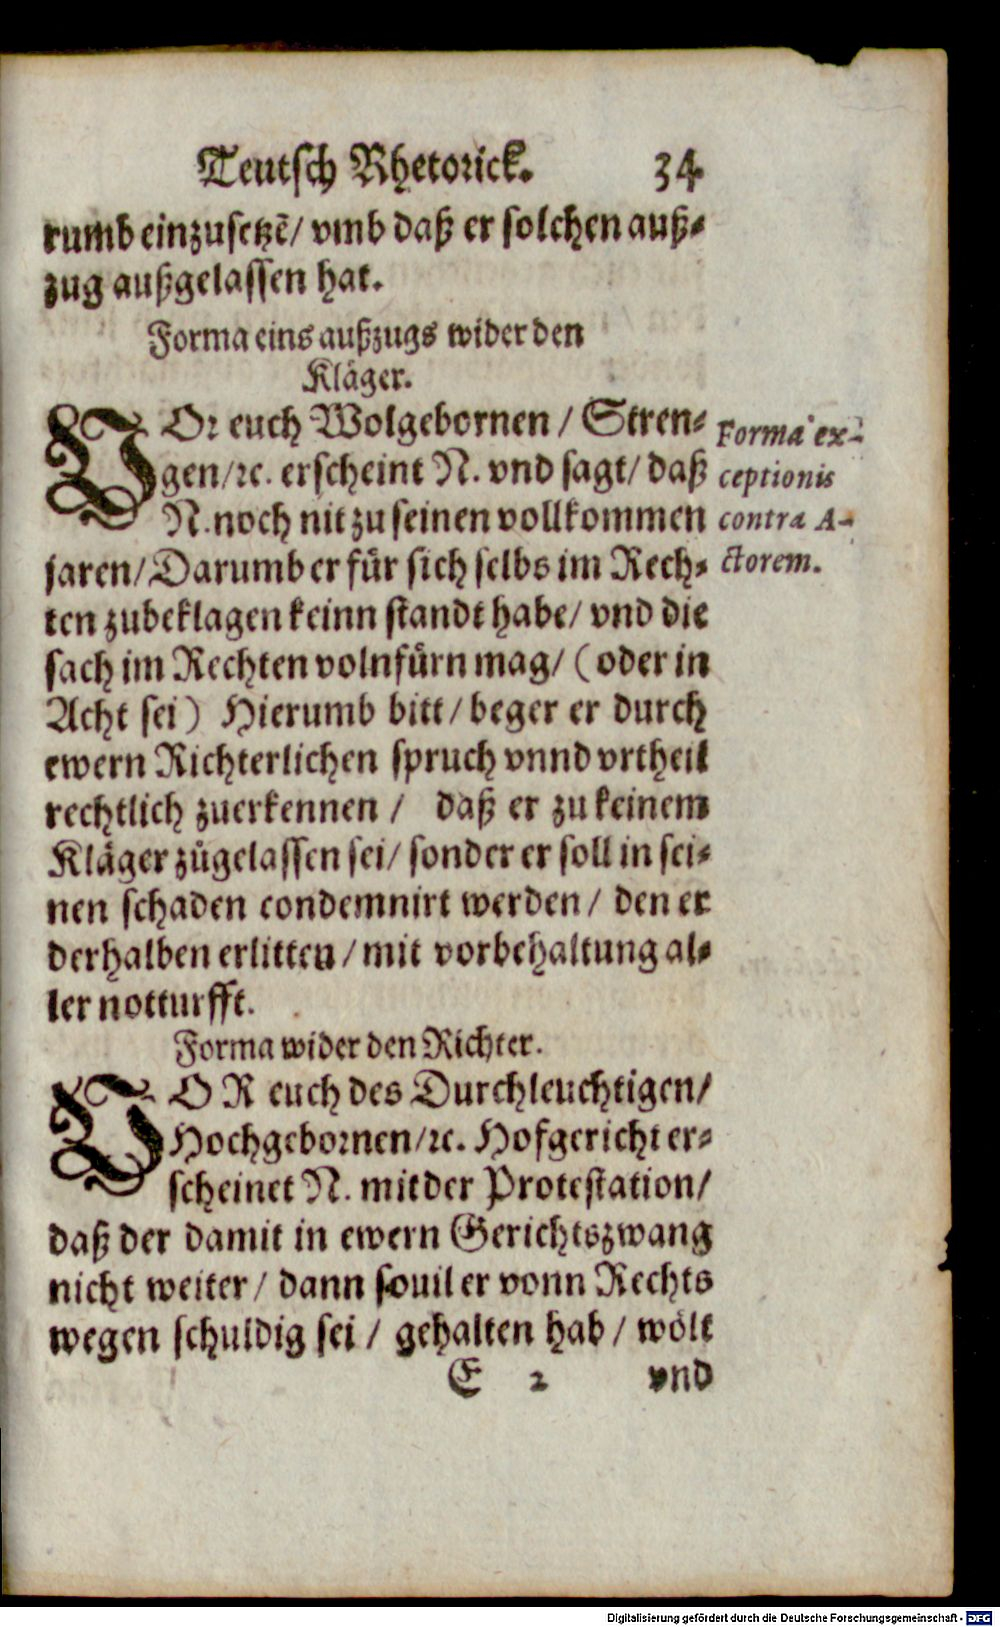 Teutsch Rhetorick. 34
rumb einzusetzẽ/ vmb daß er solchen auß-
zug außgelassen hat.
Forma eins außzugs wider den
Kläger.
VOr euch Wolgebornen / Stren-
gen/ꝛc. erscheint N. vnd sagt/ daß
N. noch nit zu seinen vollkommen
jaren/ Darumb er für sich selbs im Rech-
ten zubeklagen keinn standt habe/ vnd die
sach im Rechten volnfürn mag/ (oder in
Acht sei) Hierumb bitt / beger er durch
ewern Richterlichen spruch vnnd vrtheil
rechtlich zuerkennen / daß er zu keinem
Kläger zůgelassen sei/ sonder er soll in sei-
nen schaden condemnirt werden / den er
derhalben erlitten / mit vorbehaltung al-
ler notturfft.
Forma ex-
ceptionis
contra A-
ctorem.
Forma wider den Richter.
VOR euch des Durchleuchtigen/
Hochgebornen/ꝛc. Hofgericht er-
scheinet N. mit der Protestation/
daß der damit in ewern Gerichtszwang
nicht weiter / dann souil er vonn Rechts
wegen schuldig sei / gehalten hab / wölt
E 2 vnd
Digitalisierung gefördert durch die Deutsche Forschungsgemeinschaft - DFG